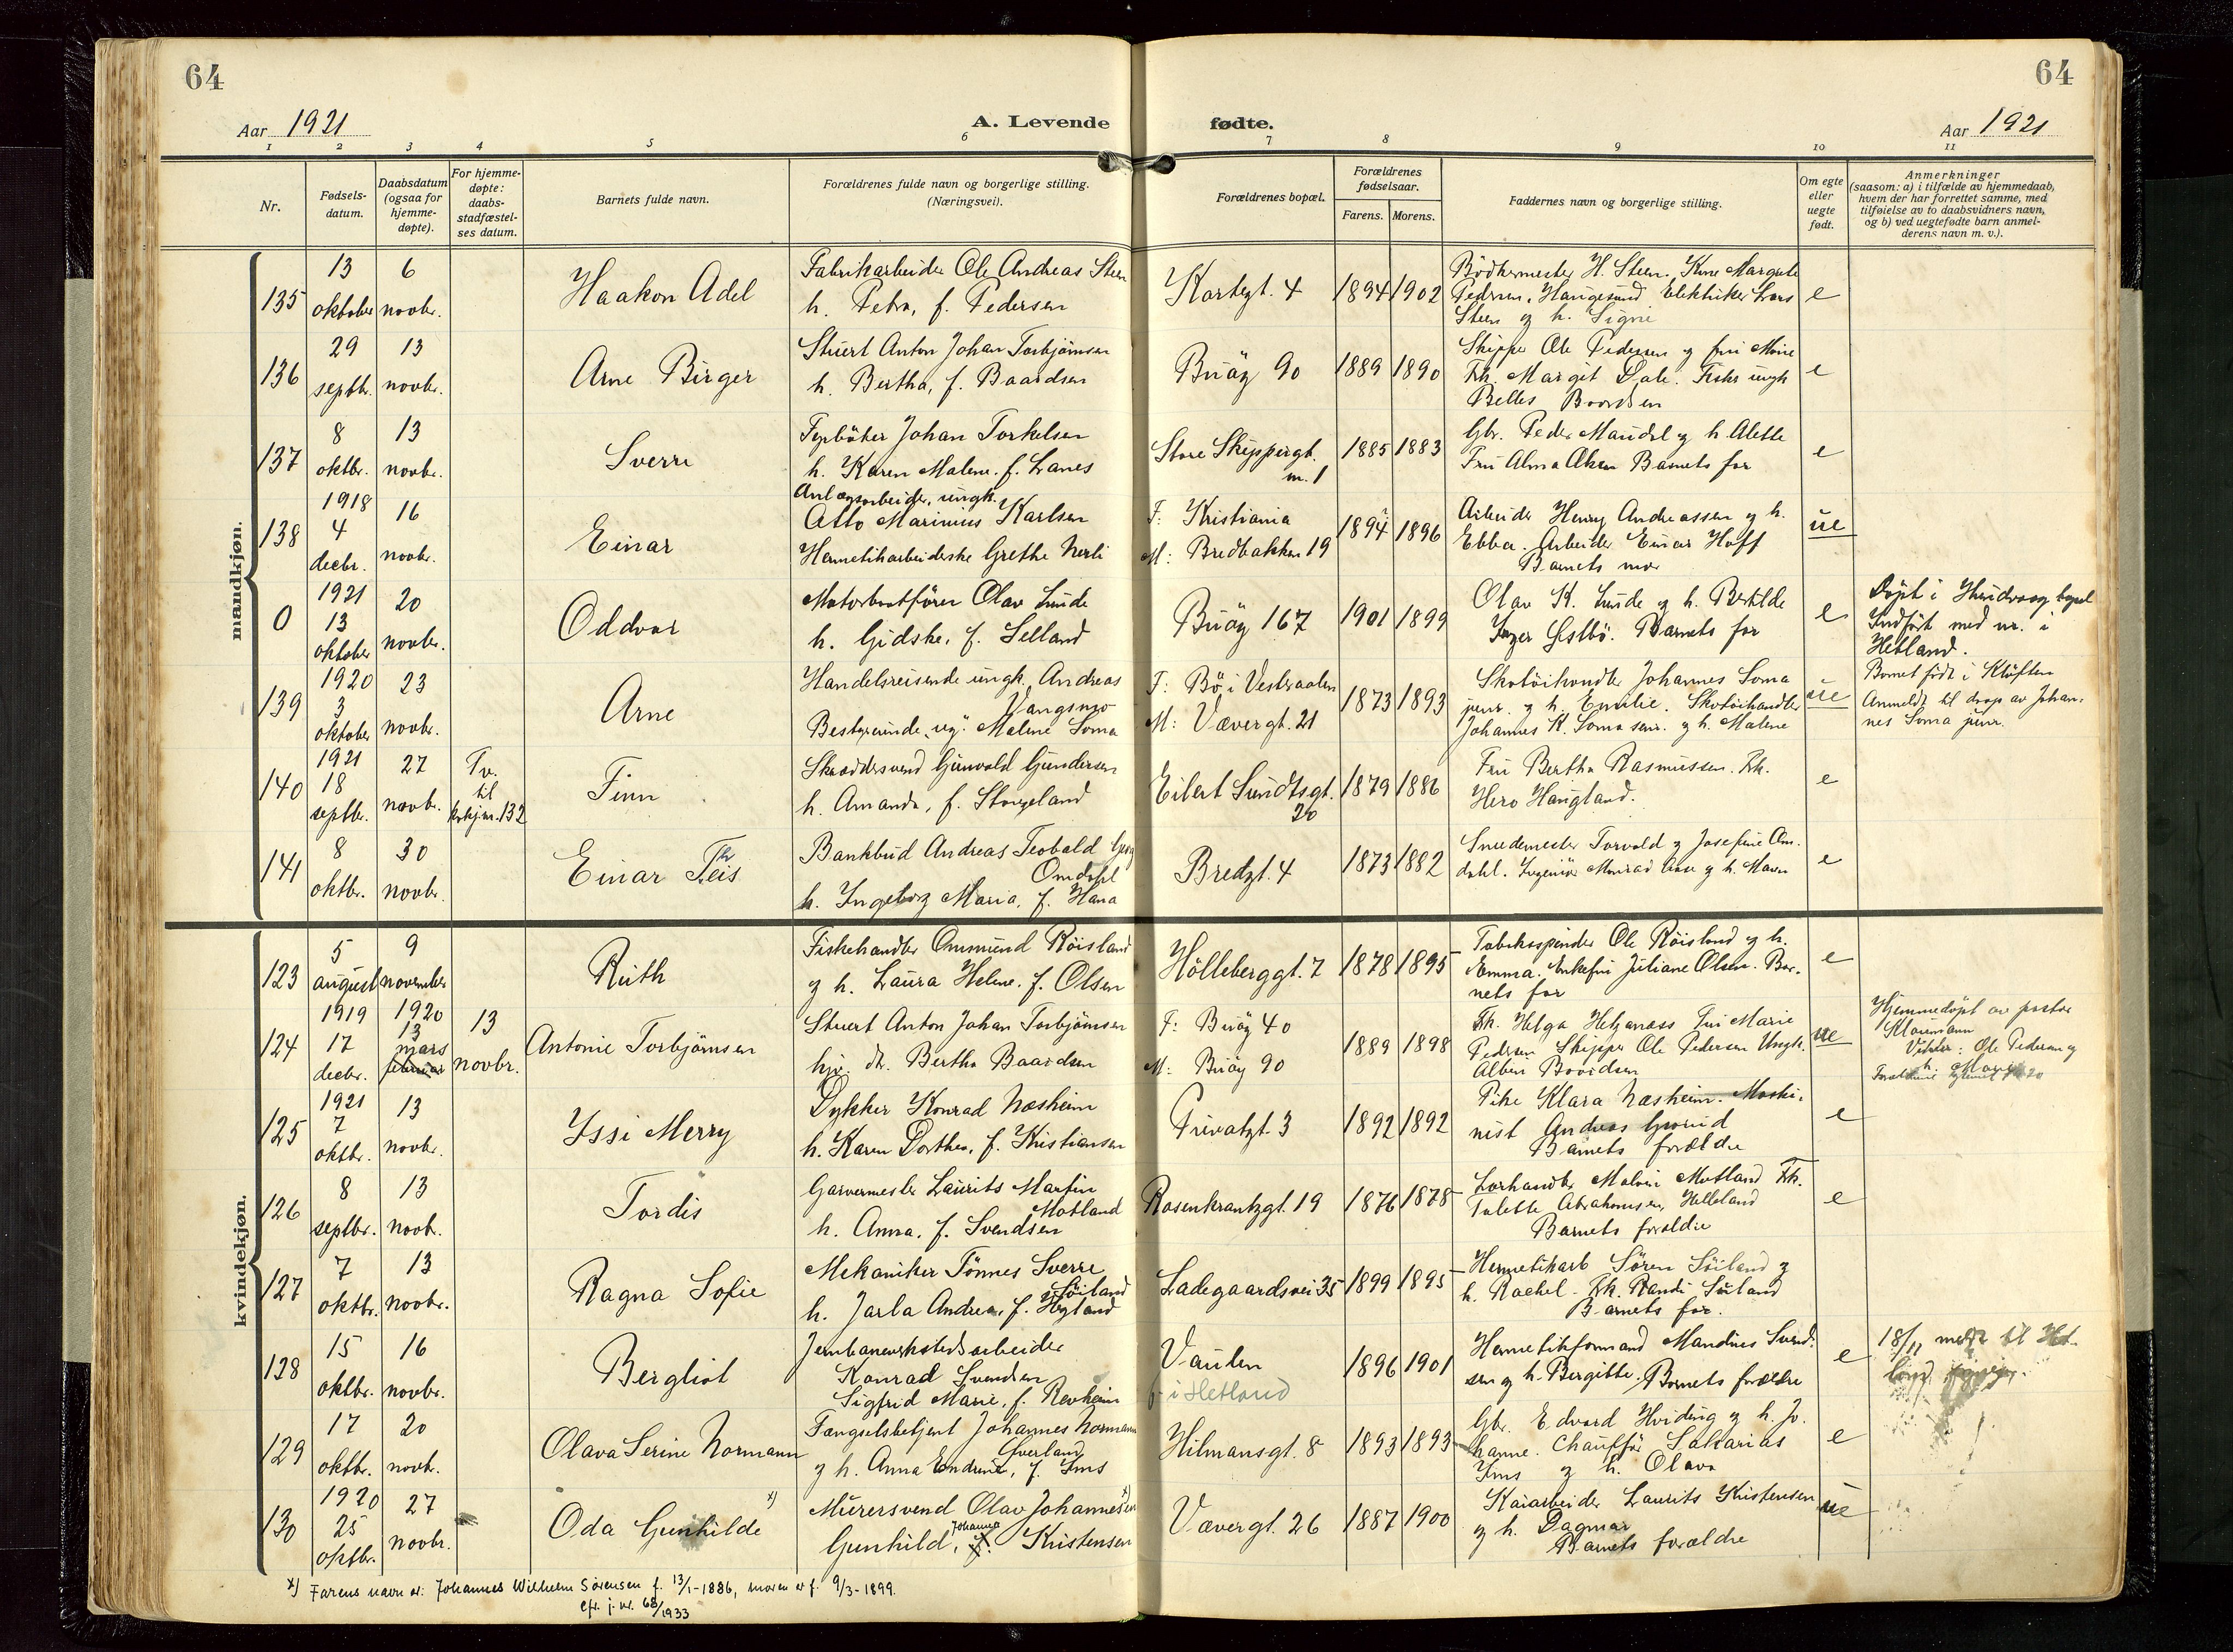 64
64
Aar 1921
A. Levende
fødte.
Aar 1921
1 2 3 4 5 6 7 8 9 10 11
Nr.
Fødsels-
datum.
Daabsdatum
(ogsaa for
hjemme-
døpte).
For hjemme-
døpte:
daabs-
stadfæstel-
ses datum.
Barnets fulde navn.
Forældrenes fulde navn og borgerlige stilling.
(Næringsvei).
Forældrenes bopæl.
Forældrenes
fødselsaar.
Farens. Morens.
Faddernes navn og borgerlige stilling.
Om egte
eller
uegte
født.
Anmerkninger
(saasom: a) i tilfælde av hjemmedaab,
hvem der har forrettet samme, med
tilføielse av to daabsvidners navn,
og b) ved uegtefødte barn anmel-
derens navn m. v.).
mandkjøn.
135
13
oktober
6
novbr.
Haakon Adel
Fabrikarbeider Ole Andreas Steen
h. Petra, f. Pedersen
Kortegt. 4
1894 1902
Bödkermester H. Steen. Kone Margrete
Pedersen, Haugesund. Elektriker Lars
Steen og h. Signe
e
136
29
septbr.
13
novbr.
Arne Birger
Stuert Anton Johan Torbjörnsen
h. Bertha, f. Baardsen
Buöy 90
1889 1890
Skipper Ole Pedersen og fru Marie
Frk. Margit Dale. Fisker ungk
Baardsen
e
137
8
oktbr.
13
novbr.
Sverre
Fyrböter Johan Torkelsen
h. Karen Malene, f. Lanes
Store Skippergt.
m. 1
1885 1883
Gbr. Peder Maudal og h. Alette
Fru Alma Barnets far
e
138
1918
4
decbr.
16
novbr.
Einar
Anlægsarbeider, ungk.
Otto Marinius Karlsen
Hermetikarbeiderske Grethe Nerli
F: Kristiania
M: Bredbakken 19
1894 1896
Arbeider Henry Andreassen og h.
Ebba. Arbeider Einar Hoff
Barnets mor
ue
0
1921
13
oktober
20
novbr.
Oddvar
Motorbaatförer Olav Lunde
h. Gidske, f. Selland
Buöy 167
1901 1899
Olav K. Lunde og h. Bertilde
Inger Barnets far
e
Döpt i kapel
Indfört med nr. i
Hetland.
139
1920
3
oktober
23
novbr.
Arne
Handelsreisende ungk. Andreas
Vangsnes
Bestyrerinde, ug. Malene Soma
F: Bö i Vesteraalen
M: Vævergt. 21
1873 1893
Skotöihandler Johannes Soma
junr. og h. Emilie. Skotöihandler
Johannes K. Soma senr. og h. Malene
ue
Barnet födt i Klöften
Anmeldt til daap av Johan-
nes Soma junr.
140
1921
18
septbr.
27
novbr.
Tv.
til
132
Finn
Skræddersvend Gunvald Gundersen
h. Amanda, f. Stangeland
Eilert Sundtsgt.
20
1879 1886
Fru Bertha Rasmussen. Frk.
Hero Haugland.
e
141
8
oktbr.
30
novbr.
Einar Theis
Bankbud Andreas Teobald Georg
Omdahl
h. Ingeborg Maria, f. Hana
Bredgt. 4
1873 1882
Snedkermester Torvald og Josefine Om-
dahl. Ingeniör Monrad Aase og h. Maren
e
kvindekjøn.
123
5
august
9
november
Ruth
Fiskehandler Ommund Röisland
og h. Laura Helene, f. Olsen
Hölleberggt. 7
1878 1895
Tobakspinder Ole Röisland og h.
Emma. Enkefru Juliane Olsen. Bar-
nets far
e
124
1919
17
decbr.
1920
13
mars
februar
13
novbr.
Antonie Torbjörnsen
Stuert Anton Johan Torbjörnsen
hjv. dt. Bertha Baardsen
F: Buöy 40
M: Buöy 90
1889 1898
Frk. Helga Helganass Fru Marie
Pedersen Skipper Ole Pedersen Ungk.
Albert Baardsen
ue
Hjemmedöpt av pastor
Klaumann
Vidner: Ole Pedersen og
h. Marie
125
1921
7
oktbr.
13
novbr.
Yssi Merry
Dykker Konrad Næsheim
h. Karen Dorthea, f. Kristiansen
Privatgt. 3
1892 1892
Pike Klara Næsheim. Maski-
nist Andreas
Barnets forældre
e
126
8
septbr.
13
novbr.
Tordis
Garvermester Laurits Martin
Motland
h. Anna, f. Svendsen
Rosenkrantzgt. 19
1876 1878
Lærhandler Malvin Motland Frk.
Tolette Abrahamsen, Helleland
Barnets forældre
e
127
7
oktbr.
13
novbr.
Ragna Sofie
Mekaniker Tönnes Sverre
Söiland
h. Jarla Andrea, f. Högland
Ladegaardsvei 35
1899 1895
Hermetikarb Sören Söiland og
h. Rachel. Frk. Randi Söiland
Barnets far.
e
128
15
oktbr.
16
novbr.
Bergliot
Jernbaneverkstedsarbeider
Konrad Svendsen
Sigfrid Marie, f. Revheim
Vaulen
i Hetland
1896 1901
Hermetikformand Mandius Svend-
sen og h. Birgitte. Barnets forældre
e
18/11 meldt til Het-
land
129
17
oktbr.
20
novbr.
Olava Serine Normann
Fængselsbetjent Johannes Normann
Gverland
og h. Anna Endrine, f. Ims
Hilmansgt. 8
1893 1893
Gbr. Edvard Hviding og h. Jo-
hanne. Chauffför Sakarias
Ims og h. Olava
e
130
1920
25
oktbr.
27
novbr.
Oda Gunhilde x)
Murersvend Olav Johannesen x)
Gunhild, Johanna f. Kristensen
Vævergt. 26
1887 1900
Kaiarbeider Laurits Kristensen
og h. Dagmar
Barnets forældre
ue
x) Farens navn er: Johannes Wilhelm Sørensen f. 13/1-1886, moren er f. 9/3-1899.
cfr. j. nr. 68/1933